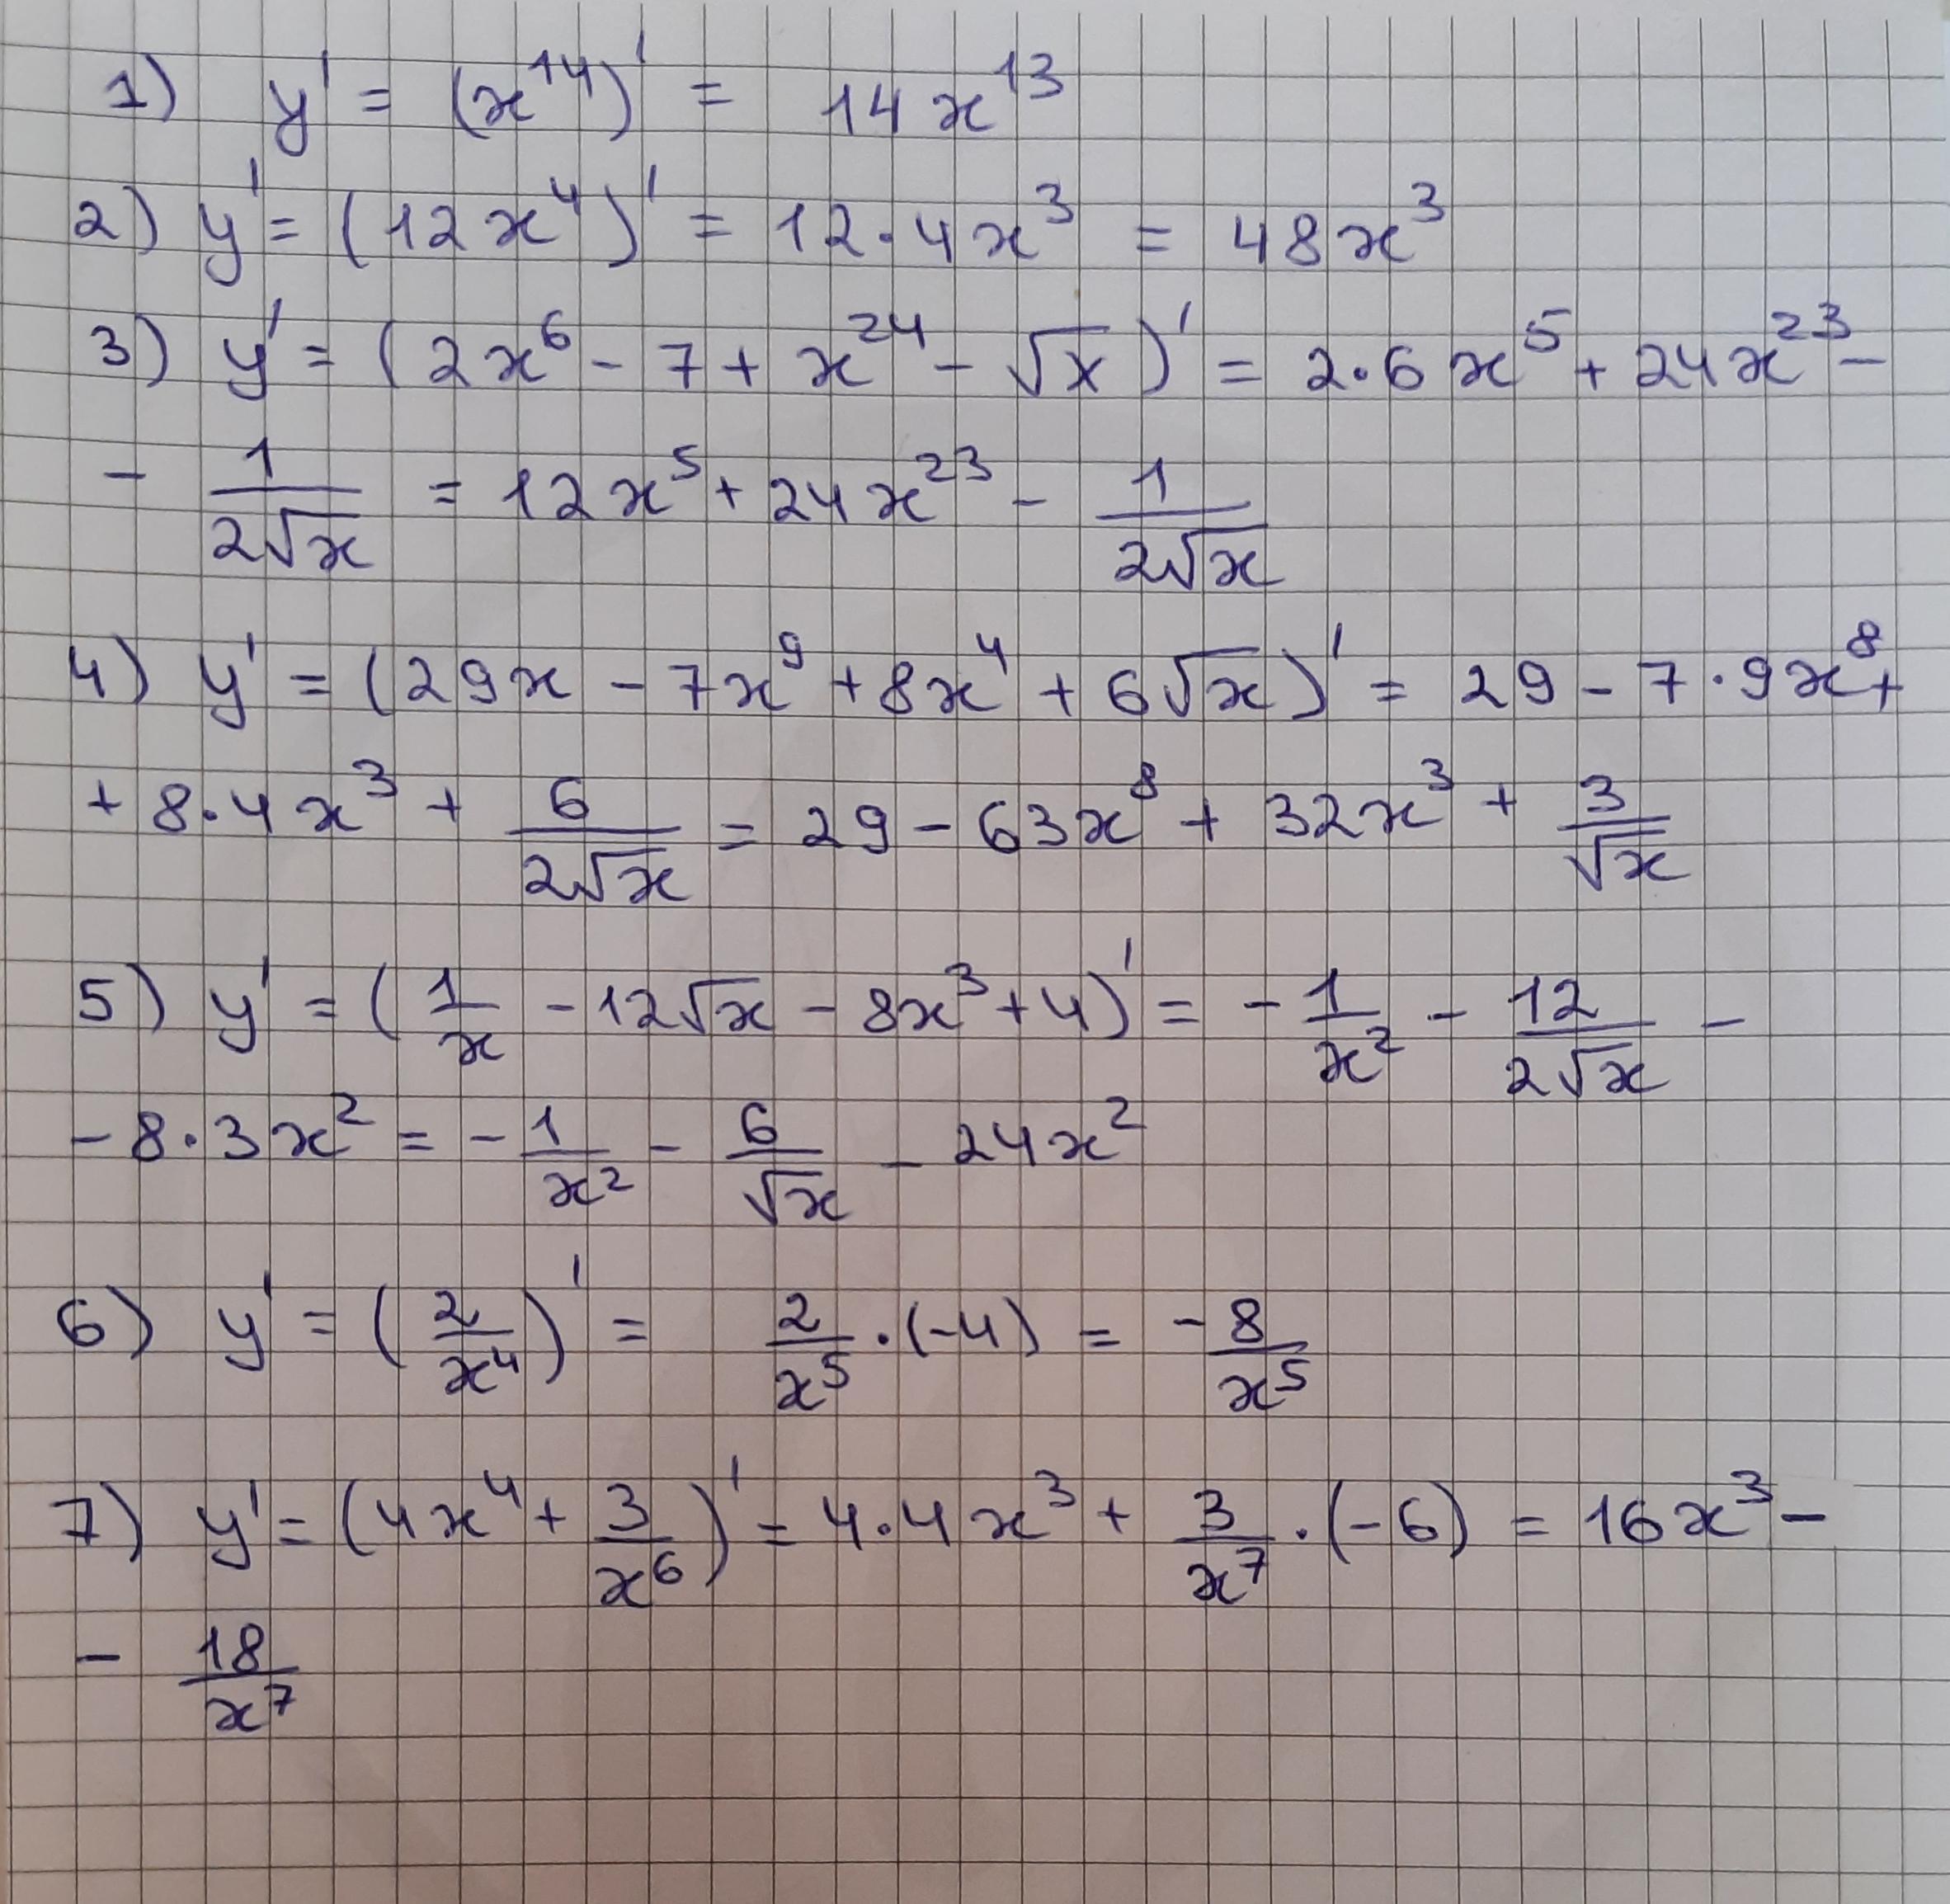 1) y' = (x¹⁴)' = 14x¹³
2) y' = (12x⁴)' = 12·4x³ = 48x³
3) y' = (2x⁶ - 7 + x²⁴ - √x)' = 2·6x⁵ + 24x²³ -
- 1/(2√x) = 12x⁵ + 24x²³ - 1/(2√x)
4) y' = (29x - 7x⁹ + 8x⁴ + 6√x)' = 29 - 7·9x⁸ +
+ 8·4x³ + 6/(2√x) = 29 - 63x⁸ + 32x³ + 3/√x
5) y' = (1/x - 12√x - 8x³ + 4)' = - 1/x² - 12/(2√x) -
- 8·3x² = - 1/x² - 6/√x - 24x²
6) y' = (2/x⁴)' = 2/x⁵ · (-4) = - 8/x⁵
7) y' = (4x⁴ + 3/x⁶)' = 4·4x³ + 3/x⁷ · (-6) = 16x³ -
- 18/x⁷